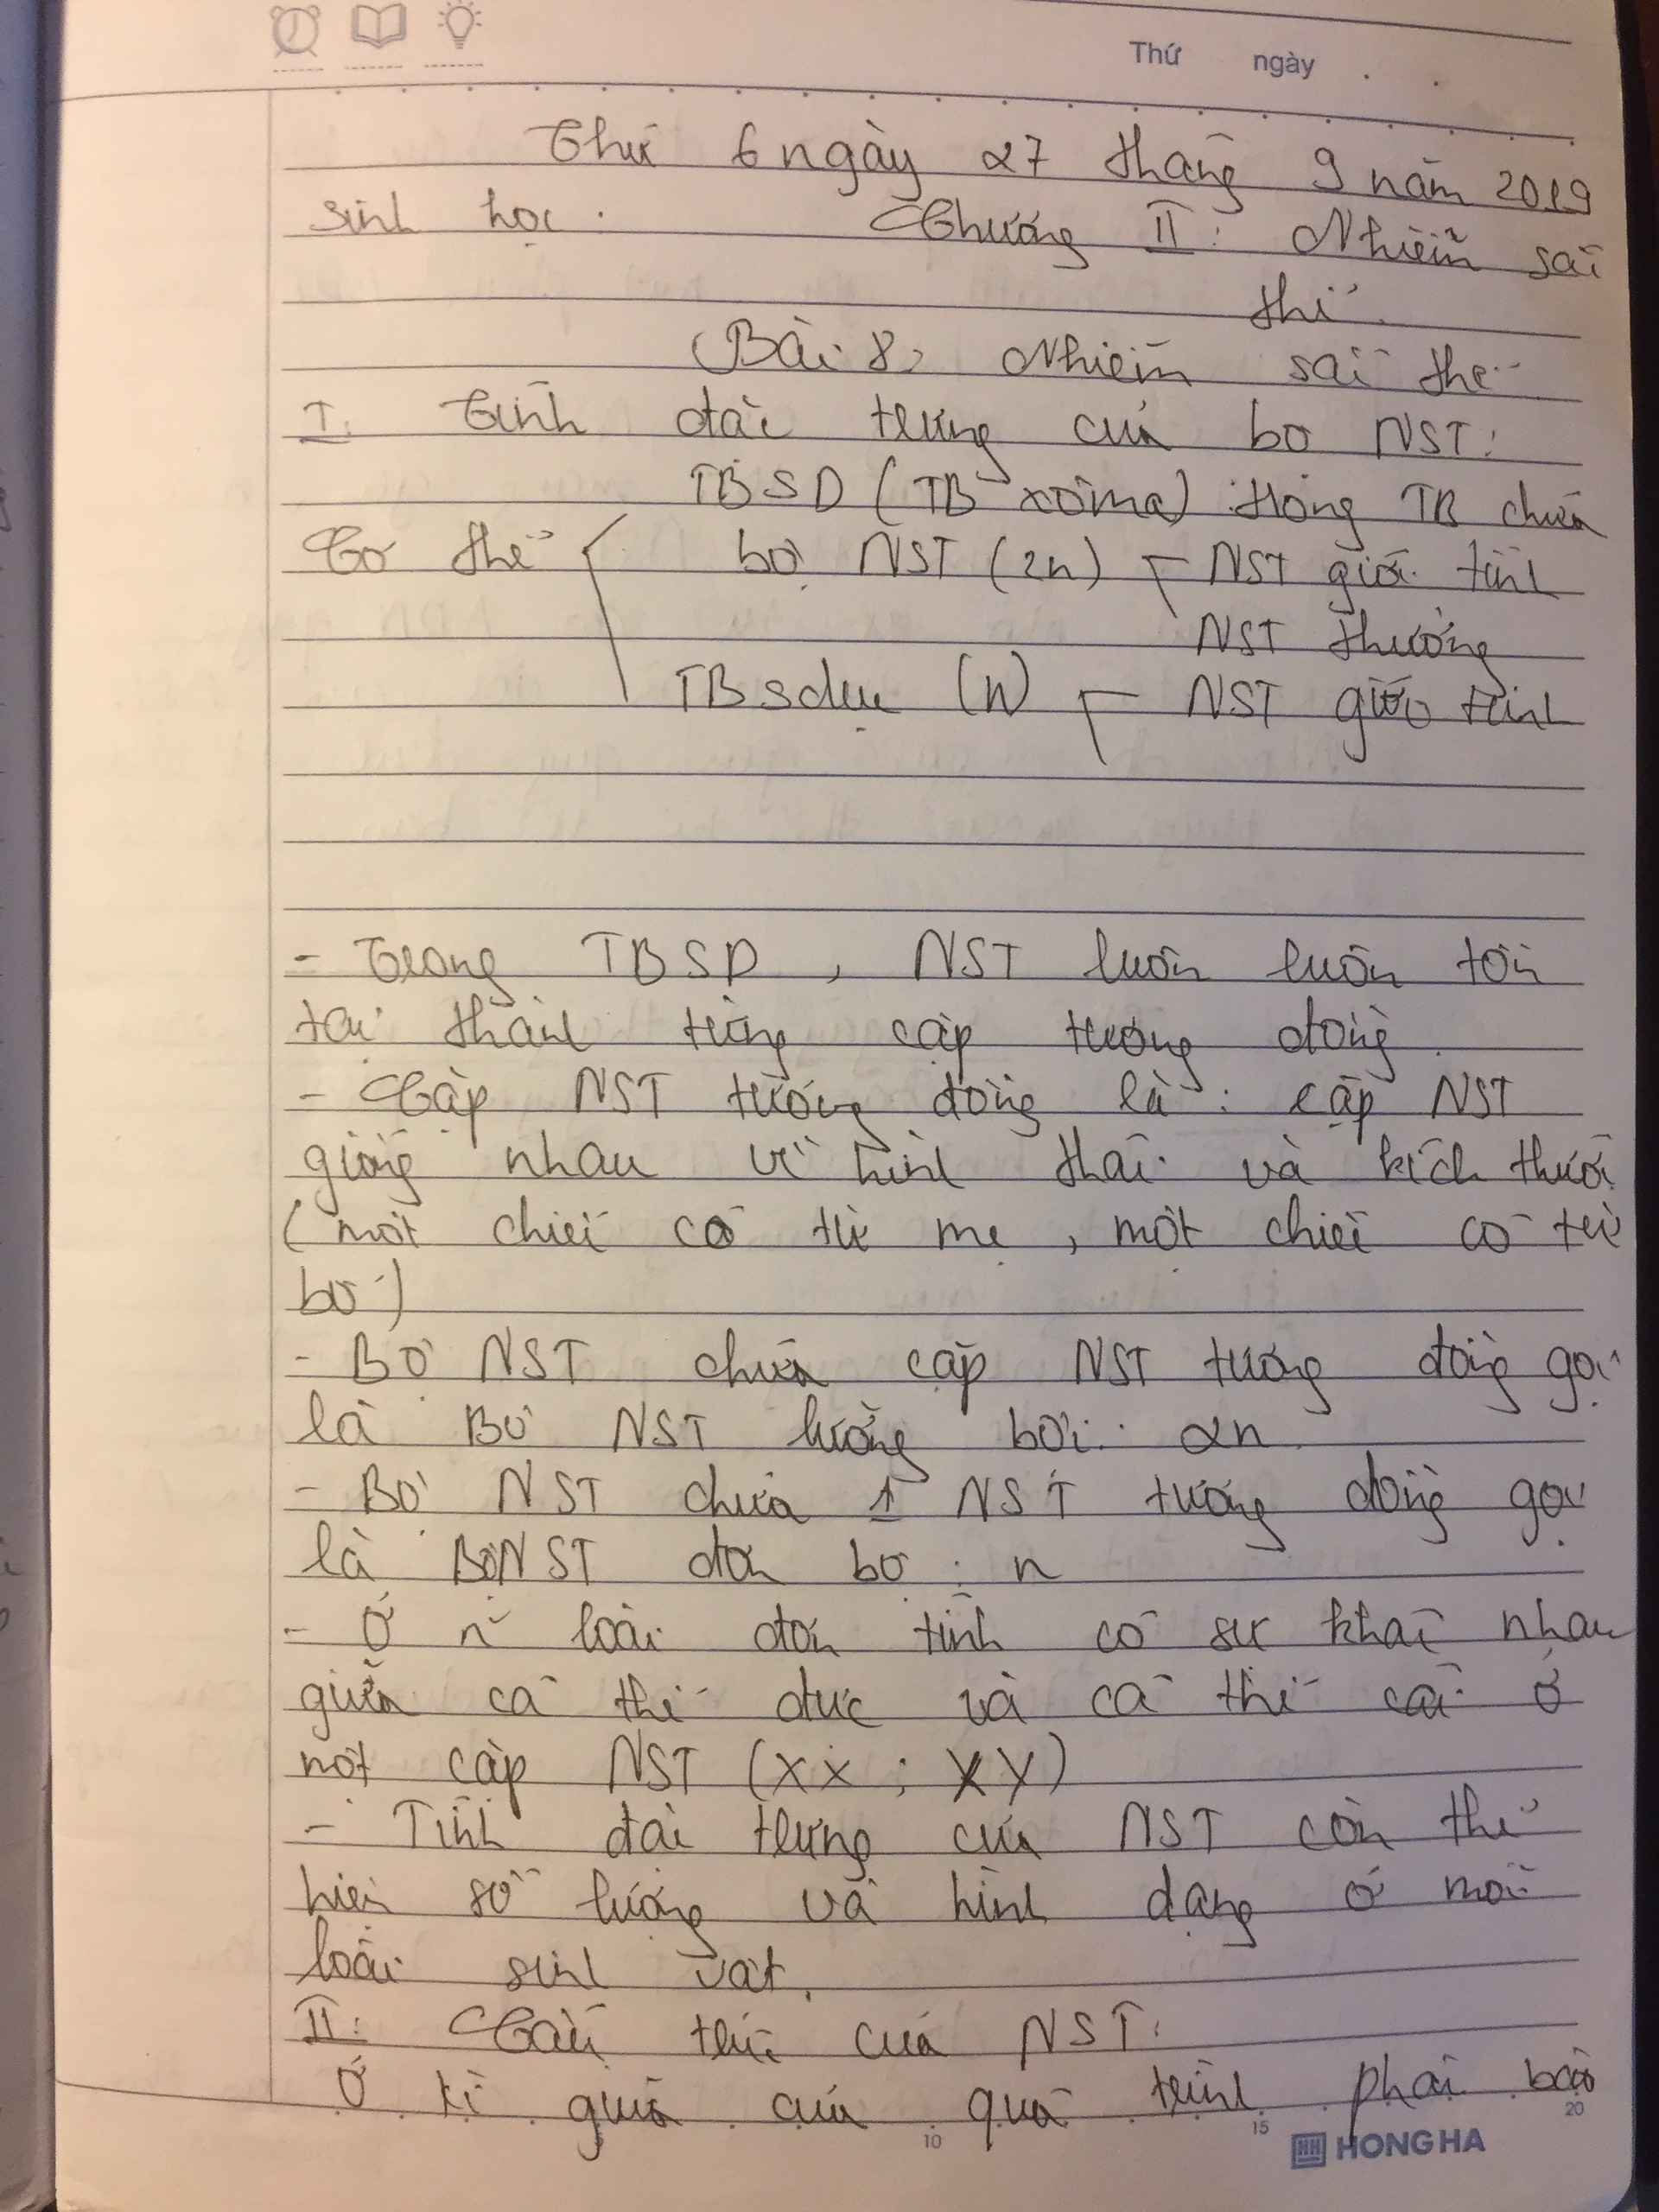 Thứ ngày
Thứ 6 ngày 27 tháng 9 năm 2019
Sinh học. Chương II: Nhiễm sắc
thể
Bài 8: Nhiễm sắc thể
I. Tính đặc trưng của bộ NST:
TBSD (TB xôma) trong TB chứa
Cơ thể bộ NST (2n) NST giới tính
NST thường
TB sdục (n) NST giới tính
- Trong TBSD, NST luôn luôn tồn
tại thành từng cặp tương đồng.
- Cặp NST tương đồng là: cặp NST
giống nhau về hình thái và kích thước
(một chiếc có từ mẹ, một chiếc có từ
bố)
- Bộ NST chứa cặp NST tương đồng gọi
là Bộ NST lưỡng bội: 2n
- Bộ NST chứa 1 NST tương đồng gọi
là Bộ NST đơn bộ: n
- Ở n~ loài đơn tính có sự khác nhau
giữa cá thể đực và cá thể cái ở
một cặp NST (XX; XY)
- Tính đặc trưng của NST còn thể
hiện số lượng và hình dạng ở mỗi
loài sinh vật.
II: Cấu trúc của NST:
Ở kì giữa của quá trình phân bào
10 15 20
HONG HA